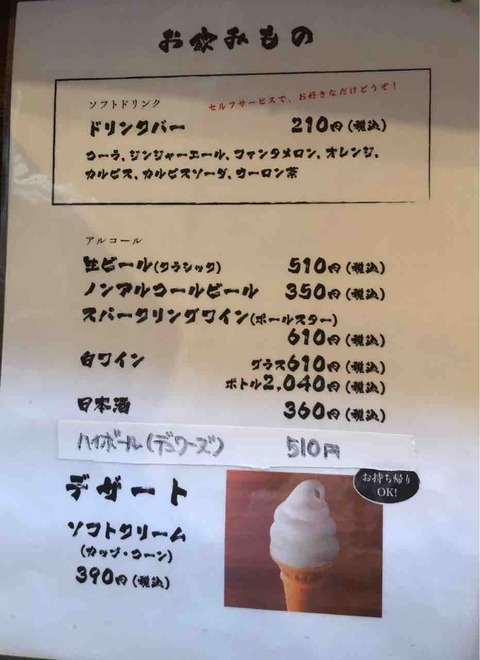 お飲みもの
ソフトドリンク
セルフサービスで、お好きなだけどうぞ！
ドリンクバー 210円(税込)
コーラ、ジンジャーエール、ファンタメロン、オレンジ、
カルピス、カルピスソーダ、ウーロン茶
アルコール
生ビール(クラシック) 510円(税込)
ノンアルコールビール 350円(税込)
スパークリングワイン(ポールスター)
610円(税込)
白ワイン グラス610円(税込)
ボトル2,040円(税込)
日本酒 360円(税込)
ハイボール(デュワーズ) 510円
お持ち帰り
OK!
デザート
ソフトクリーム
(カップ・コーン)
390円(税込)